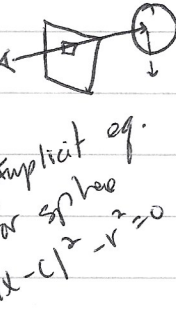 implicit eq.
or sphee
x-c|² -r² =0